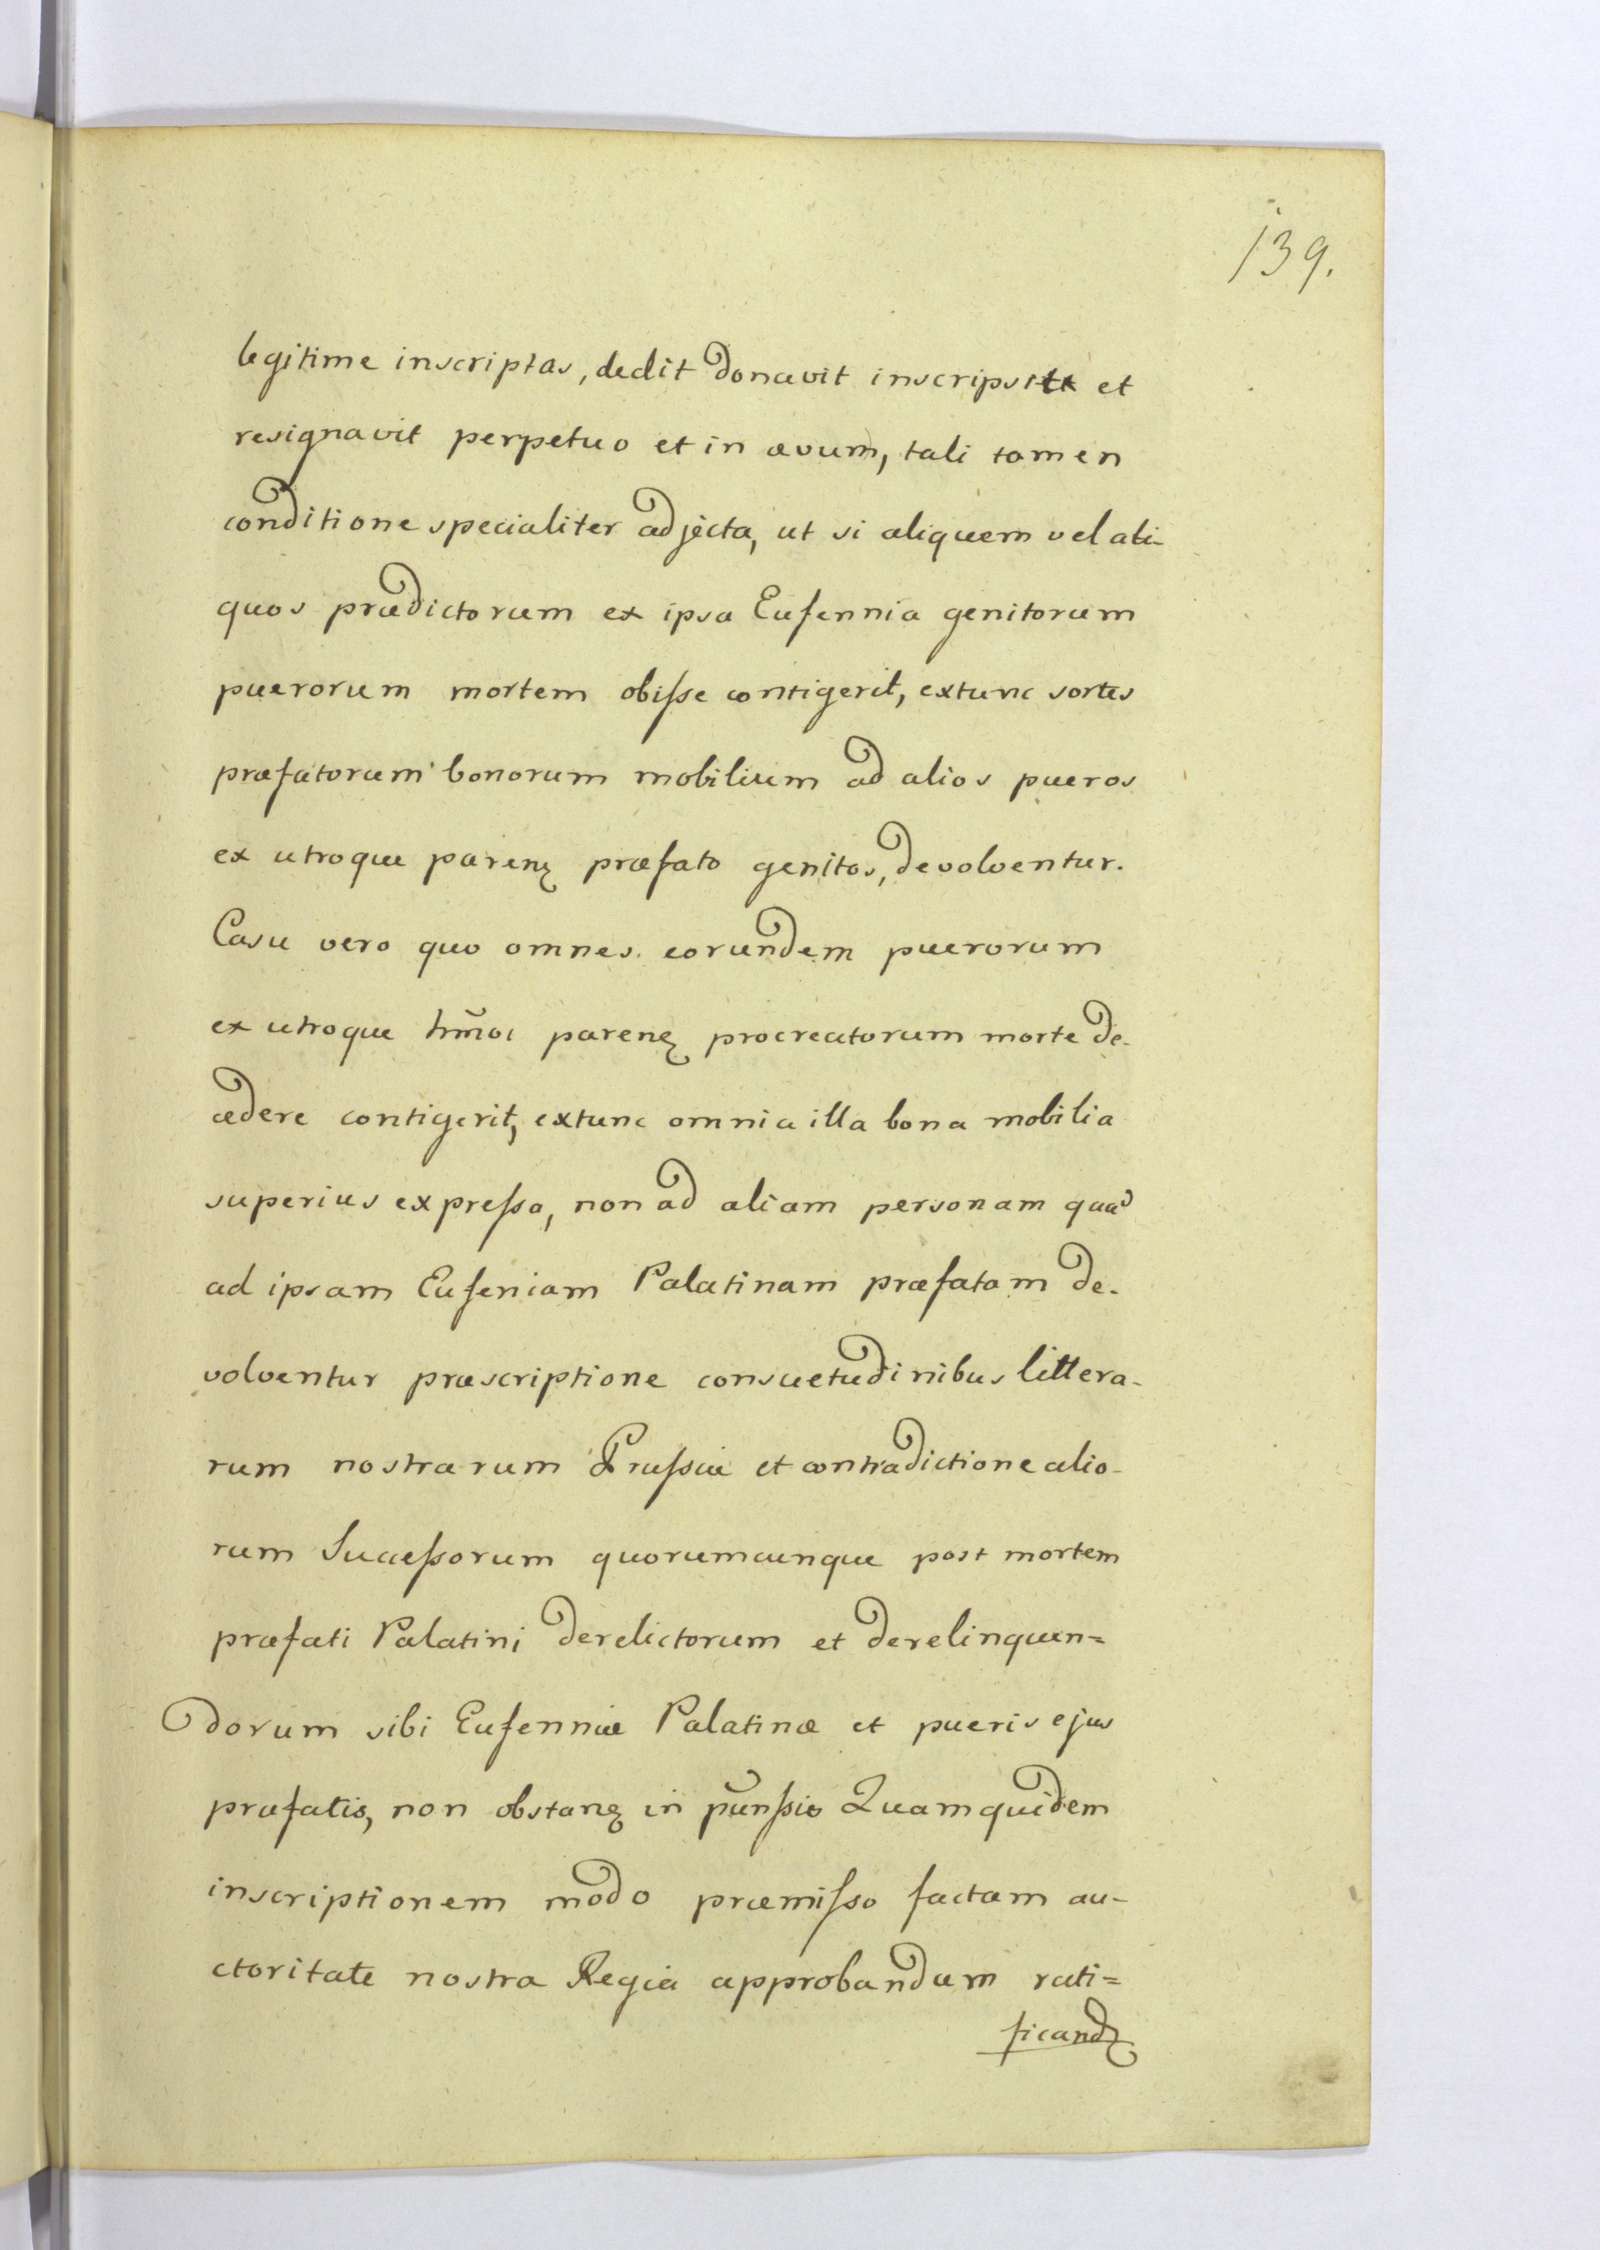 139.
legitime inscriptas, dedit donavit inscripsit et
resignavit perpetuo et in ævum, tali tamen
conditione specialiter adjecta, ut si aliquem vel ali-
quos prædictorum ex ipsa Eufennia genitorum
puerorum mortem obisse contigerit, extunc sortes
præfatorum bonorum mobilium ad alios pueros
ex utroque paren̄ præfato genitos, devolventur.
Casu vero quo omnes eorundem puerorum
ex utroque hm̄oi paren̄ procreatorum morte de-
cedere contigerit, extunc omnia illa bona mobilia
superius expressa, non ad aliam personam qua̅
ad ipsam Eufeniam Palatinam præfatam de-
volventur præscriptione consuetudinibus littera-
rum nostrarum Prussiæ et contradictione alio-
rum Successorum quorumcunque post mortem
præfati Palatini derelictorum et derelinquen=
dorum sibi Eufenniæ Palatinæ et pueris ejus
præfatis, non obstan̄ in Quamquidem
inscriptionem modo præmisso factam au-
ctoritate nostra Regia approbandum rati=
ficand